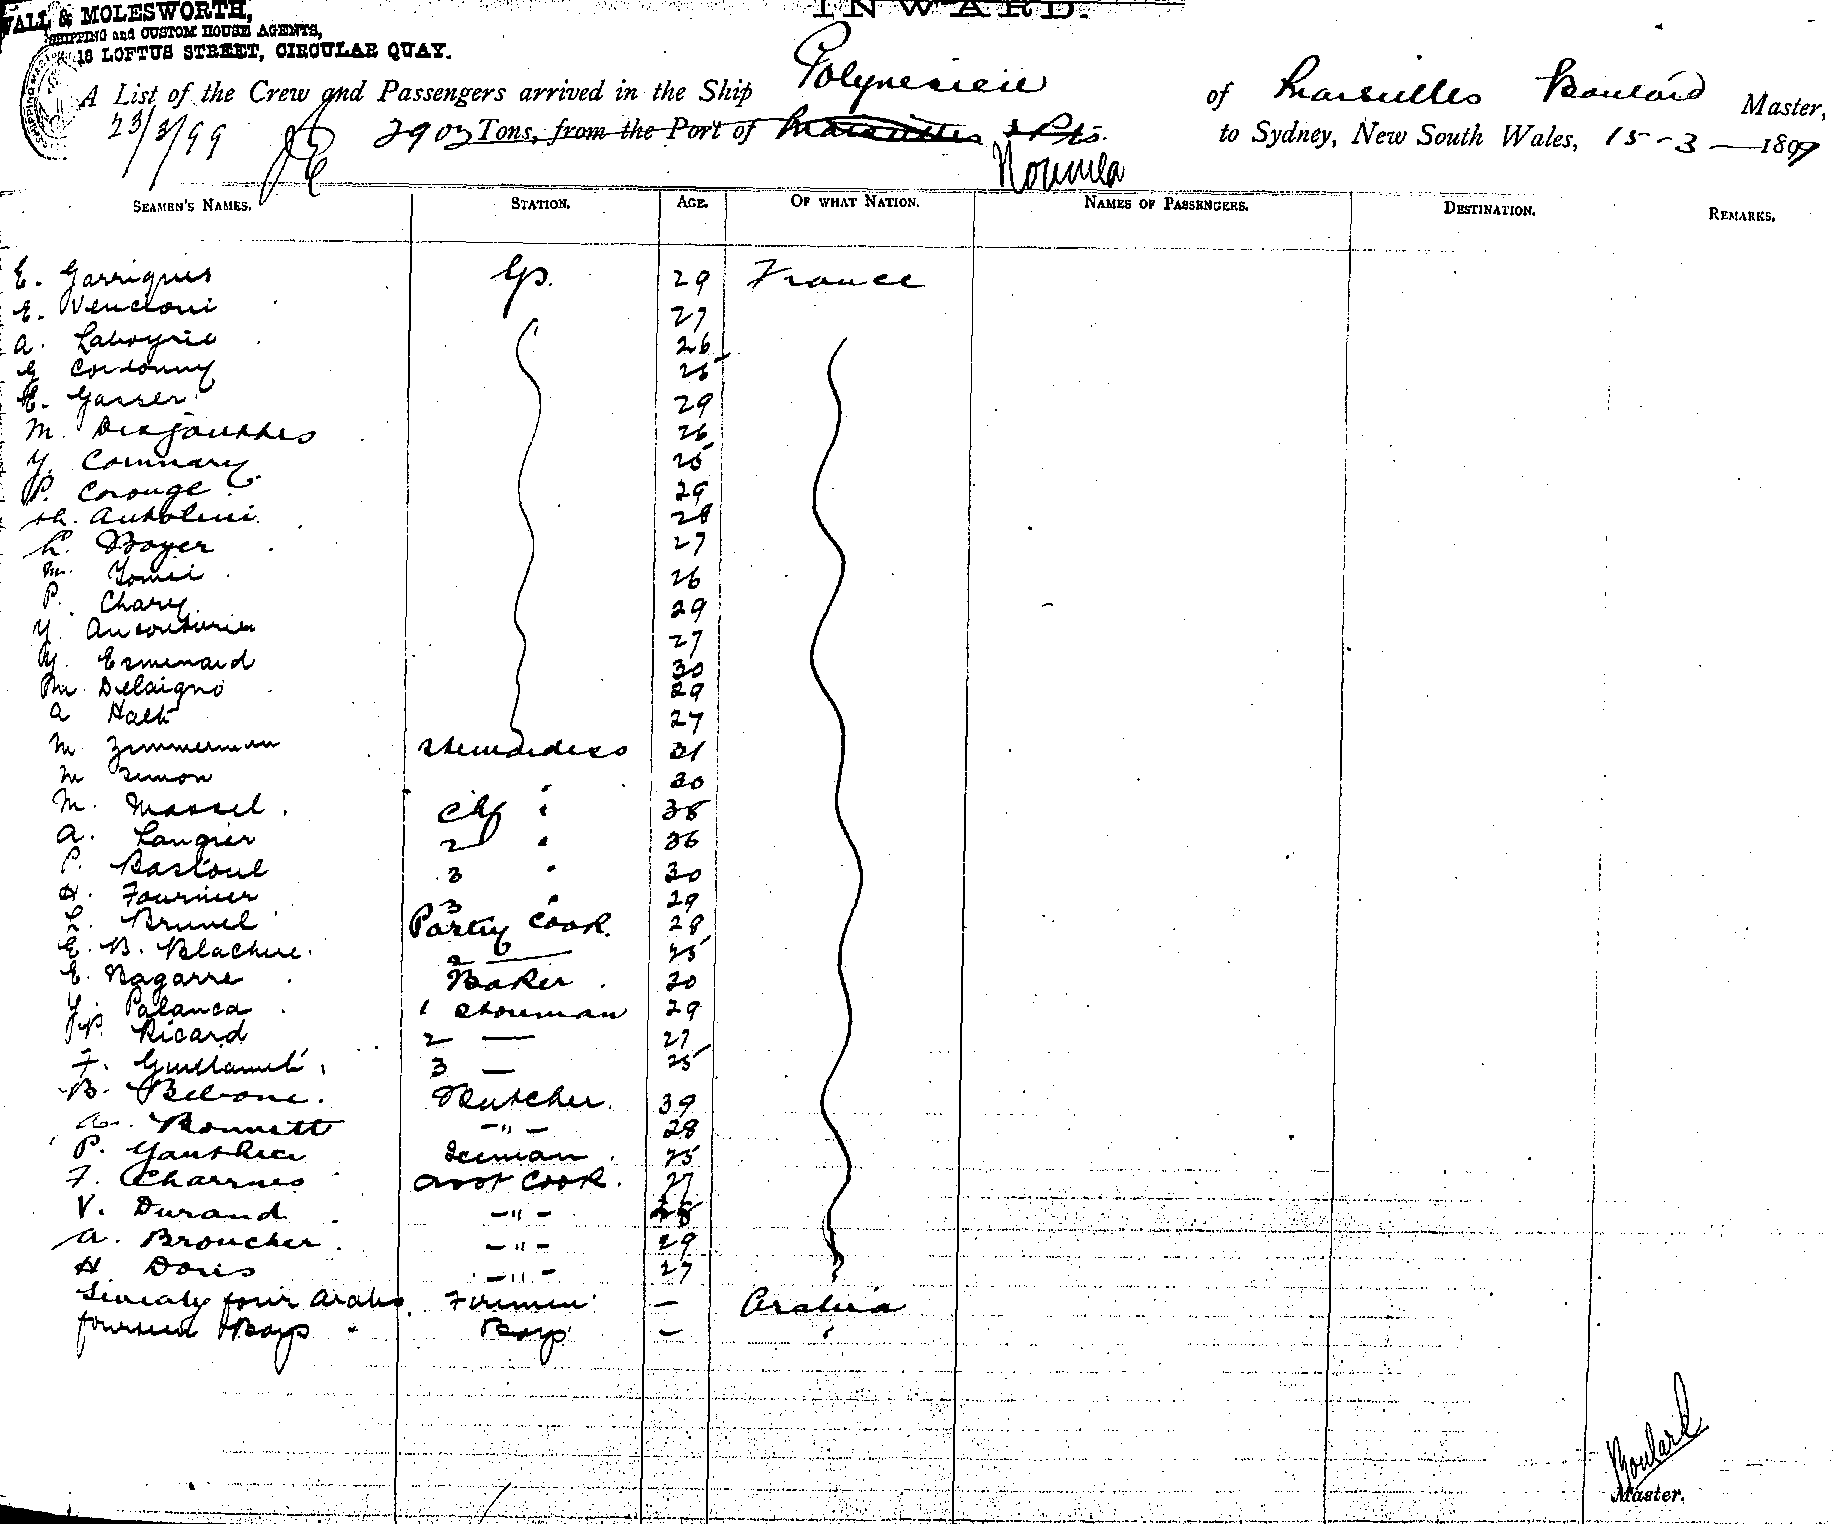 WALL & MOLESWORTH,
SHIPPING and CUSTOM HOUSE AGENTS,
18 LOFTUS STREET, CIRCULAR QUAY.
INWARD.
A List of the Crew and Passengers arrived in the Ship Polynesien of Marseilles Boulard Master,
23/3/99 2903 Tons, from the Port of Marseilles & Pts. Noumea to Sydney, New South Wales, 15-3-1899
SEAMEN'S NAMES. STATION. AGE. OF WHAT NATION. NAMES OF PASSENGERS. DESTINATION. REMARKS.
E. Garrigues 29 France
E. Vencloni 27
A. Laboyrie 26
Cordonny 25
E. Gasser 29
M. 26
Y. 25
P. Corouge 29
Antolini 28
L. Boyer 27
M. 26
P. Chary 29
Y. Aucouturier 27
Y. Esmenard 30
M. Delaigno 29
A Halt 27
M Zimmerman Stewardess 31
M Simon " 30
M. Massel. Chf " 38
A. Laugier 2 " 36
P. Bastoul 3 " 30
H. Fournier 3 " 29
L. Brunel Pastry Cook. 28
E. B. Blachere. 2 — 25
E. Bagarre Baker 30
Y. Palanca 1 Storeman 29
P. Ricard 2 — 27
F. 3 — 25
B. Belrone. Butcher. 39
A. Bonnett -"- 28
P. Gauthier Iceman 25
F. Charrues Asst Cook. 27
V. Durand -"- 28
A. Broucher. -"- 29
H Doris -"- 27
four Arabs. Firemen — Arabia
fourteen Boys " Boys — "
Boulard
Master.